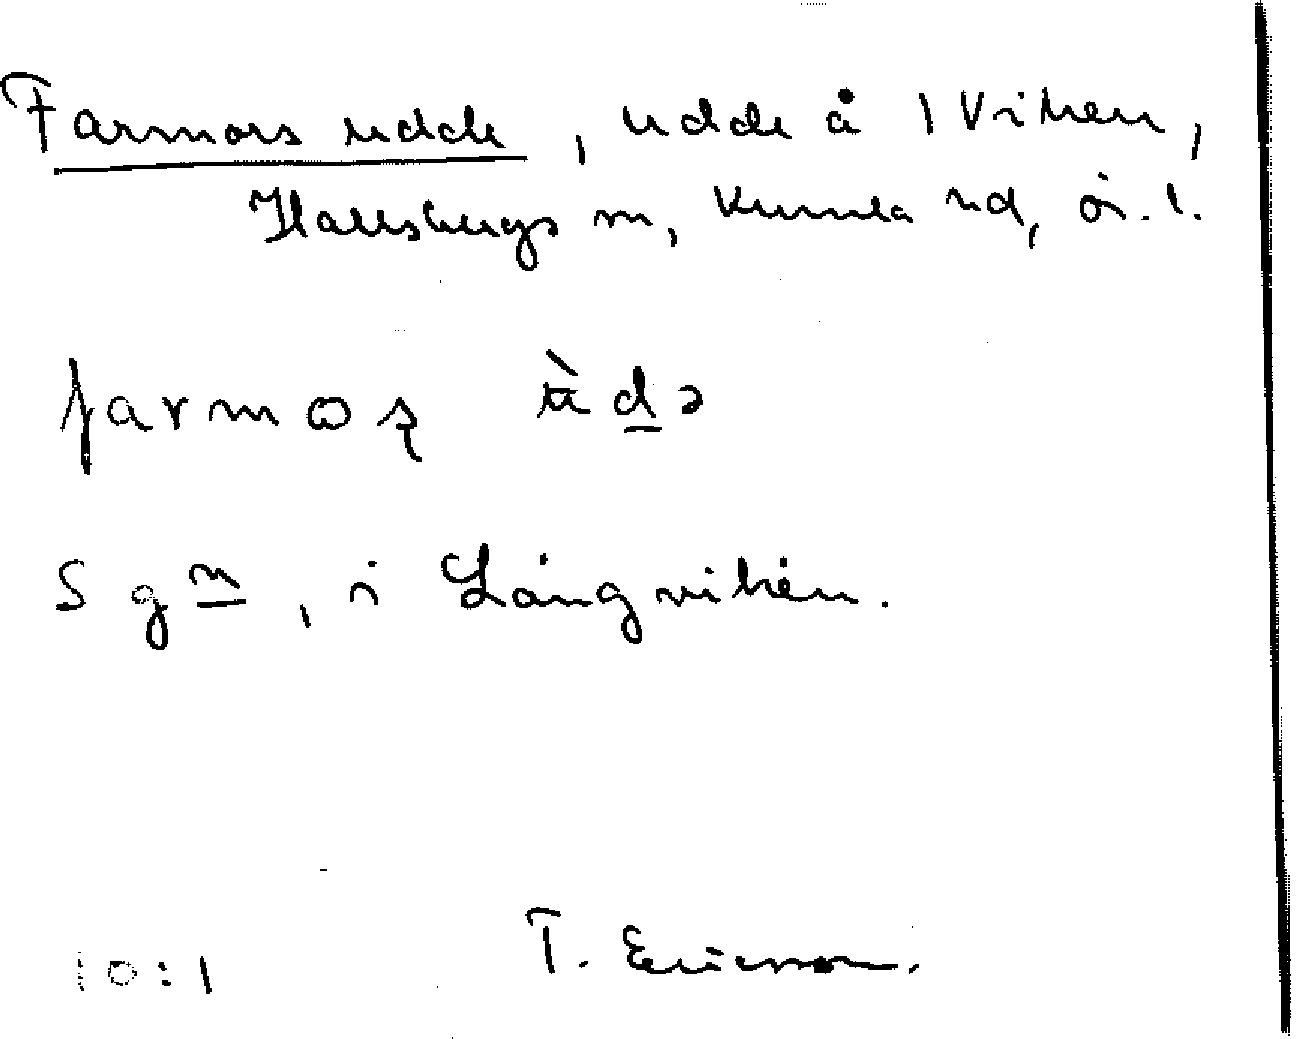 Farmors udde, udde å 1 Viken,
Hallsbergs sn, Kumla hd, ör. l.
farmoʂ ùdə
Sgn, i Långviken.
10:1 T. Ericsson.